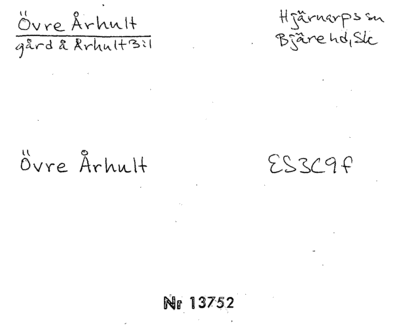 Övre Århult
Hjärnarps sn
gård å Århult 3:1
Bjäre hd, Sk
Övre Århult
ES3C9f
Nr 13752